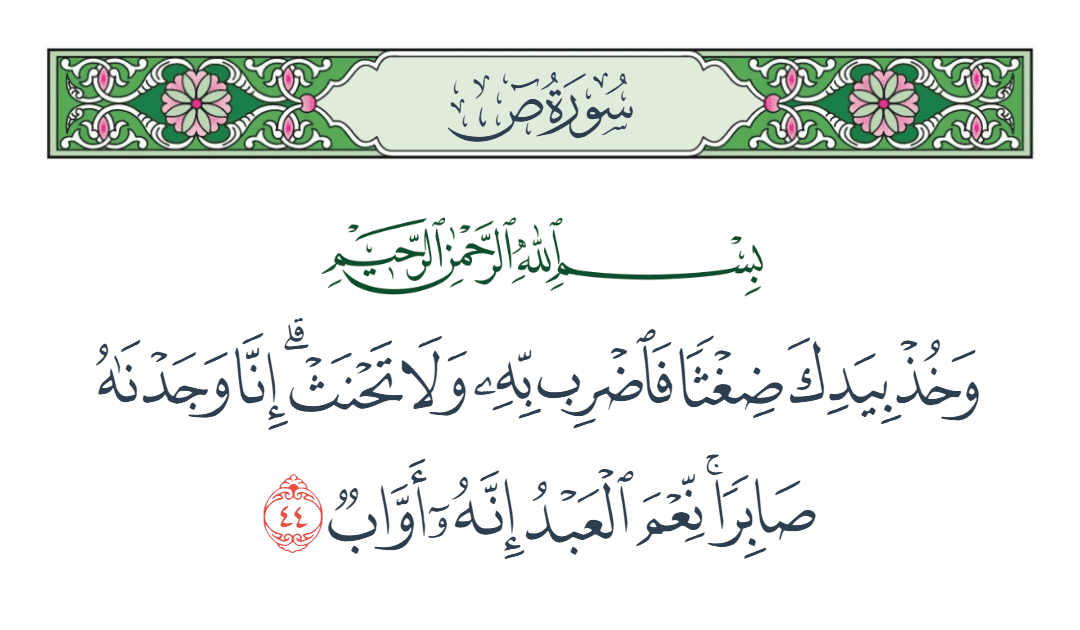 سُورَةُ صٓ
بِسْمِ ٱللَّهِ ٱلرَّحْمَٰنِ ٱلرَّحِيمِ
وَخُذْ بِيَدِكَ ضِغْثًا فَٱضْرِب بِّهِۦ وَلَا تَحْنَثْ ۗ إِنَّا وَجَدْنَٰهُ
صَابِرًا ۚ نِّعْمَ ٱلْعَبْدُ إِنَّهُۥٓ أَوَّابٌ ٤٤